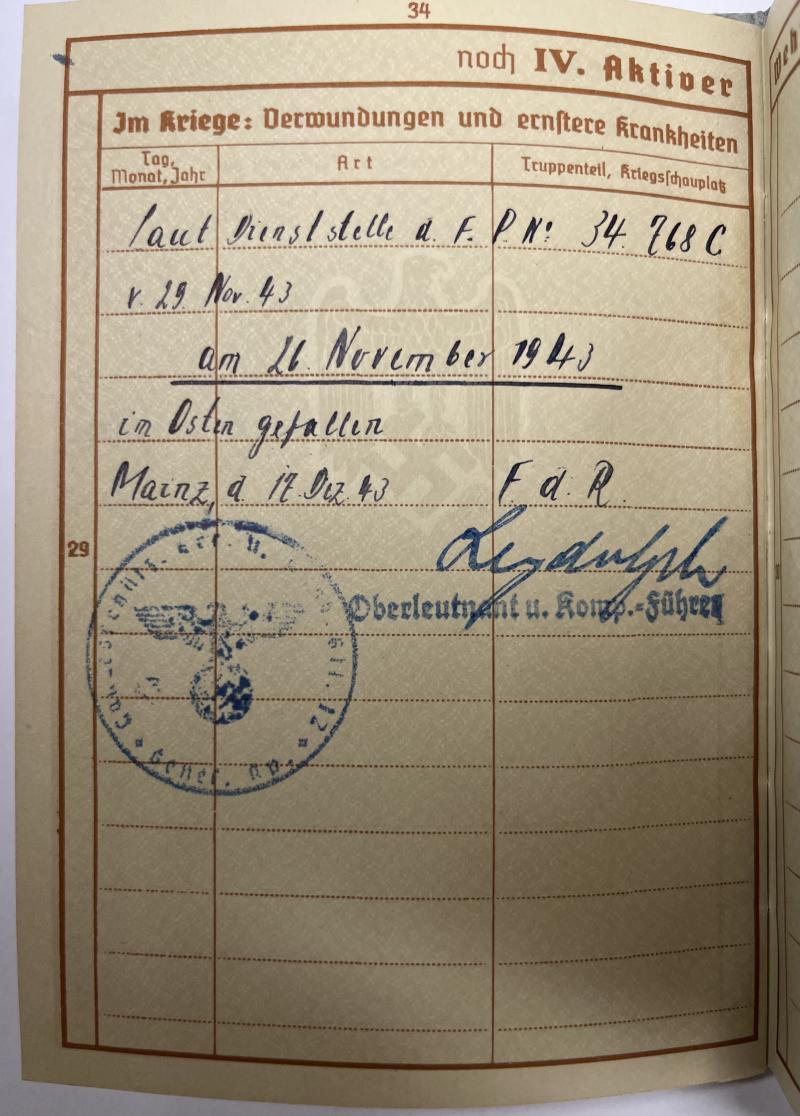 34
noch IV. Aktiver
Im Kriege: Verwundungen und ernstere Krankheiten
Tag, Monat, Jahr
Art
Truppenteil, Kriegsschauplatz
laut Dienststelle d. F. P. No 34. 768 C
v. 29. Nov. 43
am 26. November 1943
im Osten gefallen
Mainz, d. 17. Dez. 43 F. d. R.
29
Oberleutnant u. Komp.-Führer
Genes. Kp.